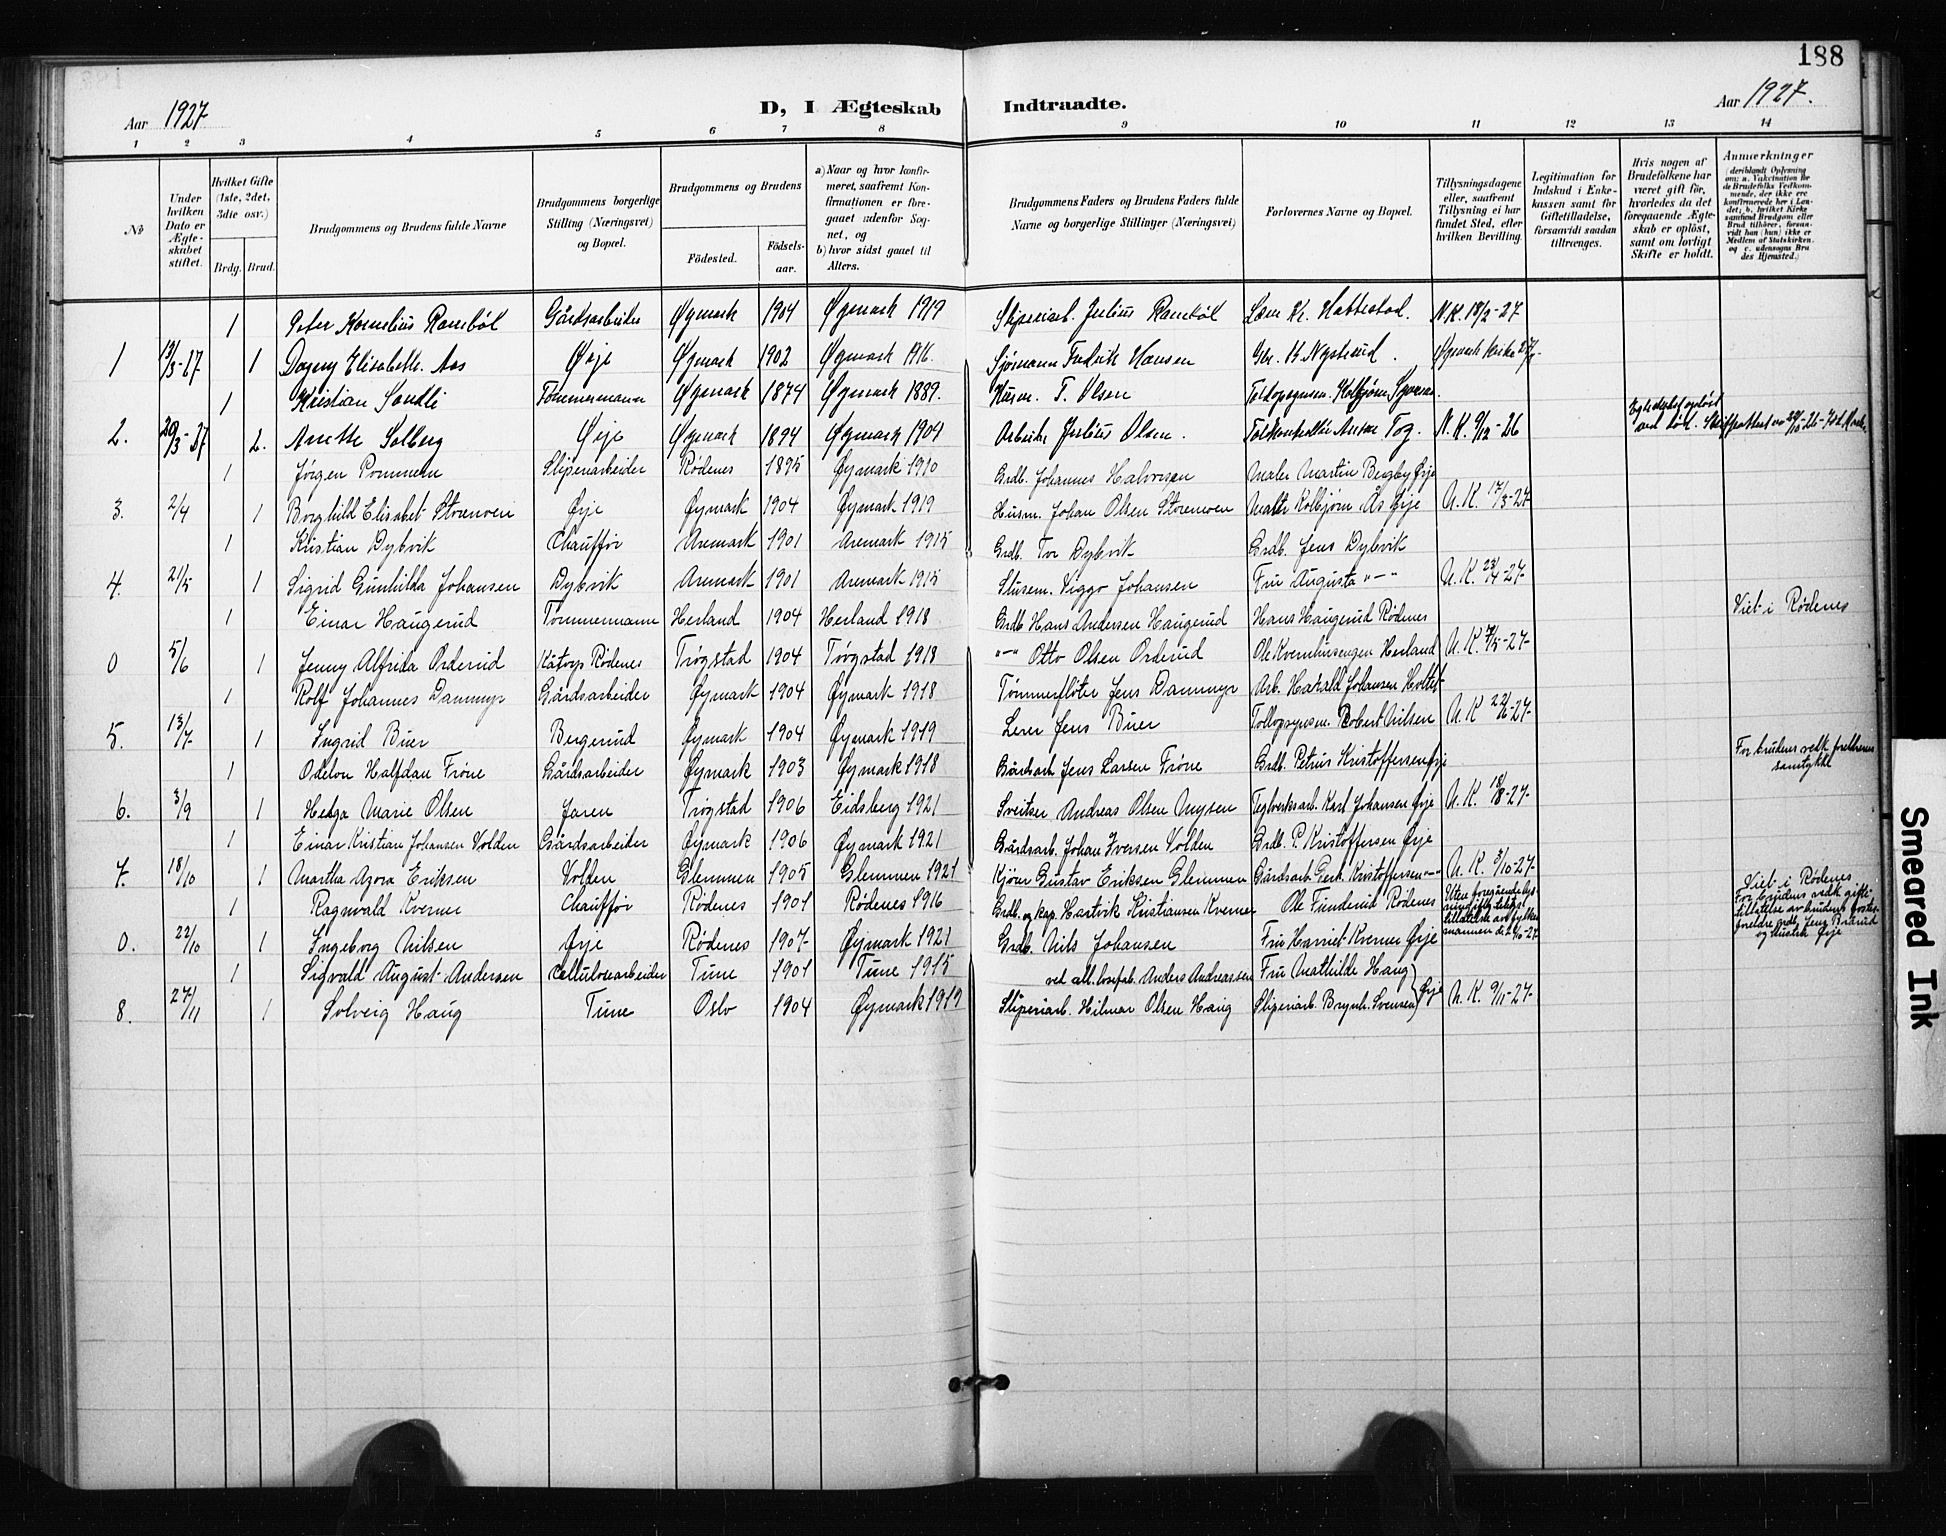 188
Aar 1927 D, I Ægteskab Indtraadte. Aar 1927.
1 2 3 4 5 6 7 8 9 10 11 12 13 14
No
Under hvilken Dato er Ægteskabet stiftet.
Hvilket Gifte (1ste, 2det, 3dte osv.)
Brdg. Brud.
Brudgommens og Brudens fulde Navne
Brudgommens borgerlige Stilling (Næringsvei) og Bopæl.
Brudgommens og Brudens
Fødested. Fødselsaar.
a) Naar og hvor konfirmeret, saafremt Konfirmationen er foregaaet udenfor Sognet, og
b) hvor sidst gaaet til Alters.
Brudgommens Faders og Brudens Faders fulde Navne og borgerlige Stillinger (Næringsvei)
Forlovernes Navne og Bopæl.
Tillysningsdagene eller, saafremt Tillysning ei har fundet Sted, efter hvilken Bevilling.
Legitimation for Indskud i Enkekassen samt for Giftetilladelse, forsaavidt saadan tiltrænges.
Hvis nogen af Brudefolkene har været gift før, hvorledes da det foregaaende Ægteskab er opløst, samt om lovligt Skifte er holdt.
Anmærkninger (deriblandt Oplysning om: a. Vakcination for de Brudefolks Vedkommende, der ikke ere konfirmerede her i Landet; b. hvilket Kirkesamfund Brudgom eller Brud tilhører, forsaavidt han (hun) ikke er Medlem af Statskirken, og c. udensogns Brudes Hjemsted.)
1 Peter Kornelius Ramböl Gårdsarbeider Øymark 1904 Øymark 1919 Sliperiarb. Julius Ramböl Kr. Hattestad. N.K. 18/2-27
1 13/3-27 1 Dagny Elisabeth Aas Ørje Øymark 1902 Øymark 1916. Sjømann Fredrik Hansen K. Nystrand.
1 Kristian Sandli Tömmermann Øymark 1874 Øymark 1889. T. Olsen
2. 20/3-27 2. Anette Solberg Ørje Øymark 1894 Øymark 1909 Arbeider Julius Olsen. N.K. 9/12-26 Egteskabet opløst ved död.
1 Jørgen Pommern Sliperiarbeider Rødenes 1895 Øymark 1910 Grdb. Johannes Halvorsen Maler Martin Bergby Ørje
3. 2/4 1 Borghild Elisabet Störenoen Ørje Øymark 1904 Øymark 1919 Husm. Johan Olsen Störenoen Kolbjørn Ås Ørje N.K. 17/3-27
1 Kristian Dybvik Chauffør Aremark 1901 Aremark 1915 Grdb. Tor Dybvik Grdb. Jens Dybvik
4. 21/5 1 Sigrid Gunhilda Johansen Dybvik Aremark 1901 Aremark 1915 Slusem. Viggo Johansen Fru Augusta "-" N.K. 23/4-27
1 Einar Haugerud Tömmermann Herland 1904 Herland 1918 Grdb. Hans Andersen Haugerud Hans Haugerud Rödenes Viet i Rødenes
0 5/6 1 Jenny Alfrida Orderud Kåtorp Rödenes Trøgstad 1904 Trøgstad 1918 "-" Otto Olsen Orderud Ole Kvernhusengen Herland N.K. 7/5-27
1 Rolf Johannes Dammyr Gårdsarbeider Øymark 1904 Øymark 1918 Tømmerfløter Jens Dammyr Arb. Harald Johansen
5. 13/7 1 Ingrid Buer Bergerud Øymark 1904 Øymark 1919 Lerer Jens Buer Tollopsynsm. Robert Nilsen N.K. 22/6-27
1 Odelon Halfdan Fröne Gårdsarbeider Øymark 1903 Øymark 1918 Gårdsarb. Jens Larsen Fröne Grdb. Petrus Kristoffersen Ørje For brudens vedk. foreldrenes samtykke
6. 3/9 1 Helga Marie Olsen Jaren Trøgstad 1906 Eidsberg 1921 Sveitser Andreas Olsen Mysen Teglverksarb. Karl Johansen Ørje N.K. 18/8-27
1 Einar Kristian Johansen Volden Gårdsarbeider Øymark 1906 Øymark 1921 Gårdsarb. Johan Iversen Volden Grdb. P. Kristoffersen Ørje
7. 18/10 1 Martha Agora Eriksen Volden Glemmen 1905 Glemmen 1921 Kjører Gustav Eriksen Glemmen Gårdsarb. Gerh. Kristoffersen "-" N.K. 3/10-27
1 Ragnvald Kverner Chauffør Rødenes 1901 Rødenes 1916 Grdb. og kap. Hartvik Kristiansen Kverner Ole Funderud Rødenes Uten foregående lysning tillatelse av fylkesmannen Viet i Rødenes For brudens vedk. giftetillatelse av brudens fosterforeldre
0. 22/10 1 Ingeborg Nilsen Ørje Rødenes 1907 Øymark 1921 Grdb. Nils Johansen Fru Harriet Kverner Ørje
1 Sigvald August Andersen Cellulosearbeider Tune 1901 Tune 1915 Anders Andreassen Fru Mathilde Haug
8. 27/11 1 Solveig Haug Tune Oslo 1904 Øymark 1919 Sliperiarb. Hilmar Olsen Haug Sliperiarb. Brynh. Svensen Ørje N.K. 9/11-27
Smeared Ink